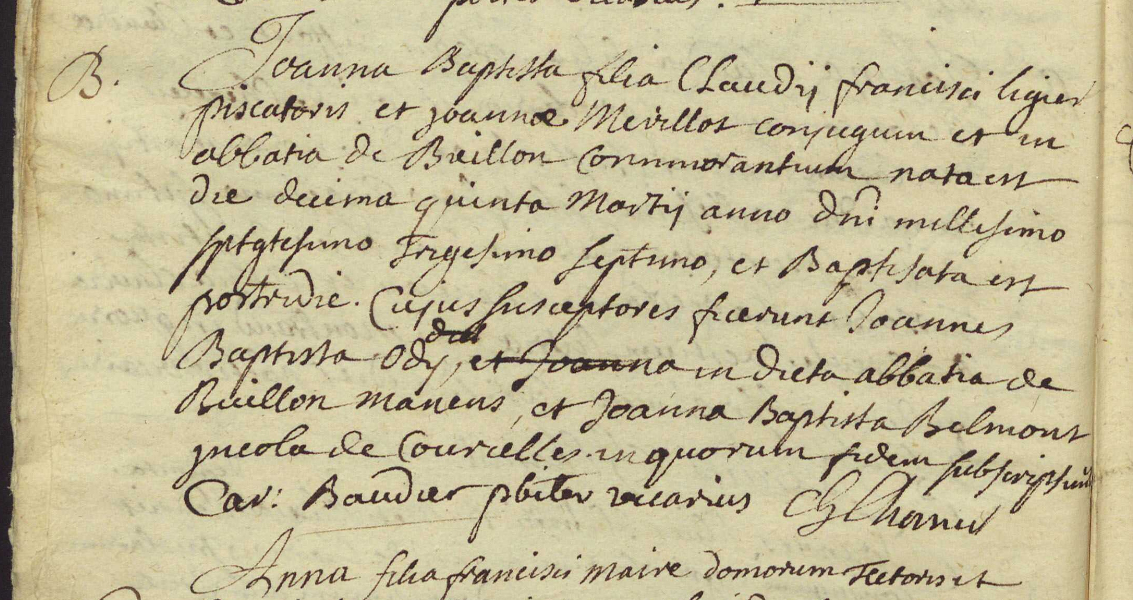 B.
Joanna Baptista filia Claudij francisci ligier
piscatoris et joannæ Mevillot conjugum et in
abbatia de Buillon commorantium nata est
die decima quinta Martij anno dni millesimo
sptgtesimo Trigesimo septimo, et Baptisata est
postridie. Cujus susceptores fuerunt Joannes
Baptista Ody, et Joanna in dicta abbatia de
Buillon manens, et Joanna Baptista Belmont
jncola de Courcelles. in quorum fidem subscripsi
Car: Baudier pbiter vicarius
Anna filia francisci maire domorum Tectoris et